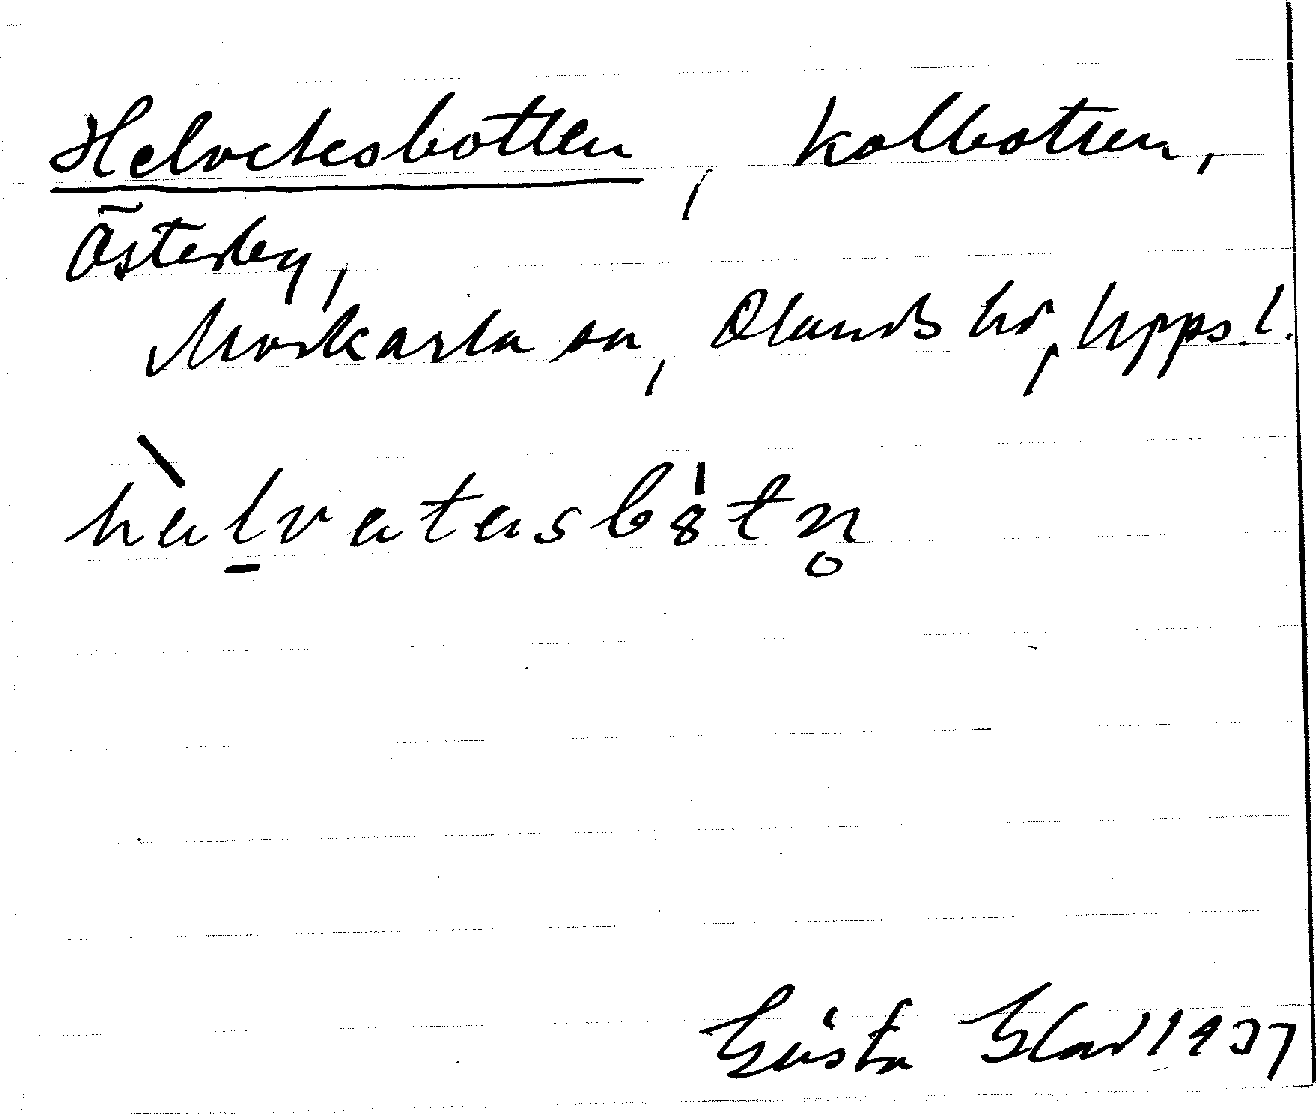 Helvetesbotten, kolbotten,
Österby,
Morkarla sn, Olands hd, Upps. l.
hàlvatasbȣ̍tn̥
Gösta Glad 1937